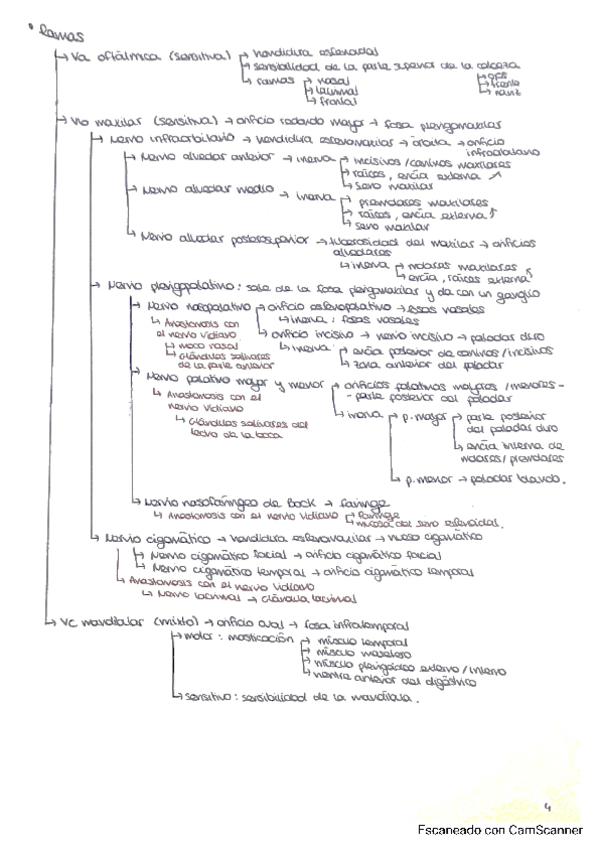 • Ramas
↳ Va oftálmica (sensitiva) → hendidura esfenoidal
→ sensibilidad de la parte superior de la cabeza
→ ramas → nasal → ojos
→ lacrimal → frente
→ frontal → nariz
→ Vb maxilar (sensitiva) → orificio redondo mayor → fosa pterigomaxilar
→ Nervio infraorbitario → hendidura esfenomaxilar → órbita → orificio infraorbitario
→ Nervio alveolar anterior → inerva → incisivos/caninos maxilares
→ raíces, encía externa
→ seno maxilar
→ Nervio alveolar medio → inerva → premolares maxilares
→ raíces, encía externa
→ seno maxilar
→ Nervio alveolar posterosuperior → tuberosidad del maxilar → orificios alveolares
→ inerva → molares maxilares
→ encía, raíces externa
→ Nervio pterigopalatino: sale de la fosa pterigomaxilar y da con un ganglio
→ Nervio nasopalatino → orificio esfenopalatino → fosas nasales
↳ Anastomosis con el nervio Vidiano
↳ inerva: fosas nasales
→ orificio incisivo → nervio incisivo → paladar duro
↳ moco nasal
↳ inerva → encía posterior de caninos/incisivos
↳ Glándulas salivares de la parte anterior
→ zona anterior del paladar
→ Nervio palatino mayor y menor → orificios palatinos mayores/menores -
- parte posterior del paladar
↳ Anastomosis con el nervio Vidiano
↳ Glándulas salivares del techo de la boca
→ inerva → p. mayor → parte posterior del paladar duro
→ encía interna de molares/premolares
→ p. menor → paladar blando.
→ Nervio nasofaríngeo de Bock → faringe
↳ Anastomosis con el nervio Vidiano → faringe
→ mucosa del seno esfenoidal.
→ Nervio cigomático → hendidura esfenomaxilar → hueso cigomático
→ Nervio cigomático facial → orificio cigomático facial
→ Nervio cigomático temporal → orificio cigomático temporal
↳ Anastomosis con el nervio Vidiano
↳ Nervio lacrimal → glándula lacrimal
→ Vc mandibular (mixto) → orificio oval → fosa infratemporal
→ motor: masticación → músculo temporal
→ músculo masetero
→ músculo pterigoideo externo/interno
→ vientre anterior del digástrico
→ sensitivo: sensibilidad de la mandíbula.
4
Escaneado con CamScanner